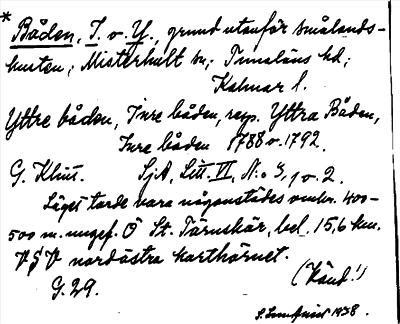 * Båden, I. o. Y., grund utanför Smålands-
kusten; Misterhult sn; Tunaläns hd;
Kalmar l.
Yttre båden, Inre båden, resp. Yttra Båden,
Inre båden 1788 o. 1792.
G. Klint. SjA, Litt. VI, N:o 3, 1 o. 2.
Läget torde vara någonstädes omkr. 400-
500 m. ungef. O St. Tärnskär, bel. 15,6 km.
V § V nordöstra karthörnet.
G. 29. (Känd!)
1938.